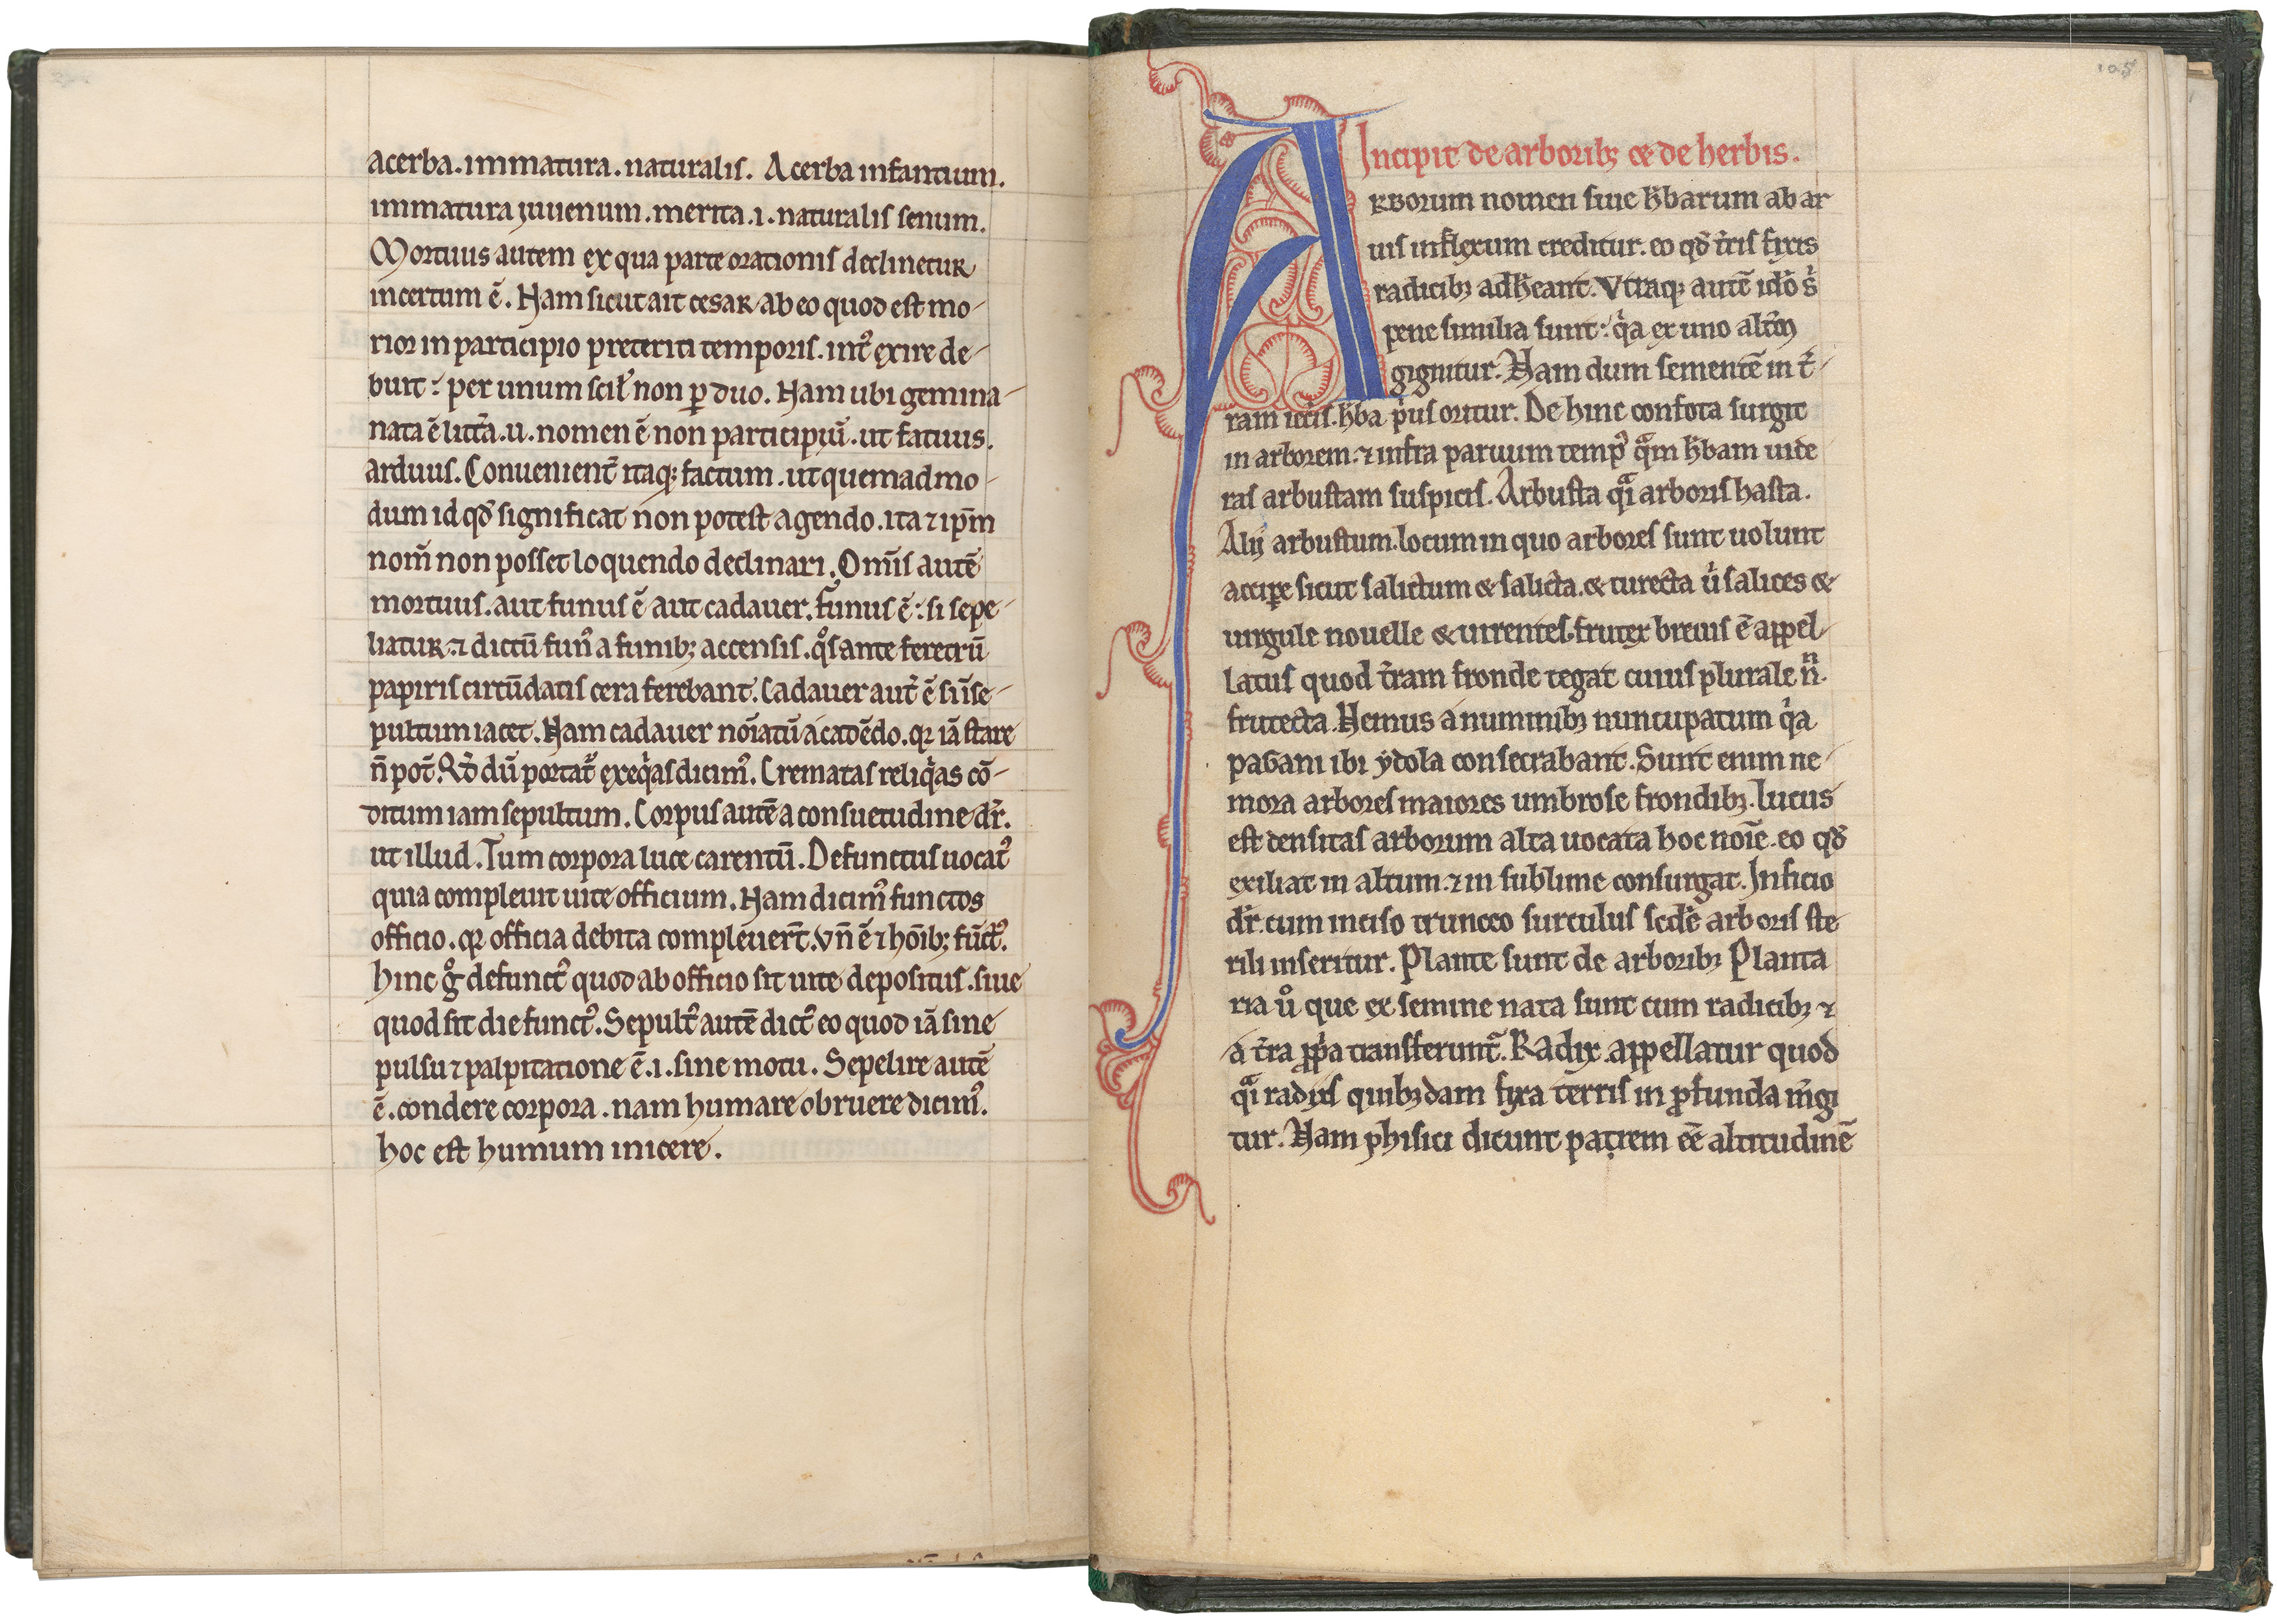 acerba. immatura. naturalis. Acerba infantium.
immatura iuuenum. merita .i. naturalis senum.
Mortuus autem ex qua parte orationis declinetur
incertum ē. Nam sicut ait cesar ab eo quod est mo-
rior in participio preteriti temporis. int᷒ exire de-
buit: per unum scił non ꝑ duo. Nam ubi gemina-
nata ē litt̄a .u. nomen ē non participiū. ut fatuus.
arduus. Conuenient̄ itaqꝫ factum. ut quemadmo-
dum id qd̄ significat non potest agendo. ita ⁊ ip̄m
nom̄ non posset loquendo declinari. Om̄is autē
mortuus. aut funus ē aut cadauer. funus ē: si sepe-
liatur. ⁊ dictū fun᷒ a funibꝫ accensis. qͦs ante feretrū
papiris circūdatis cera ferebant. Cadauer aut̄ ē si īse-
pultum iacet. Nam cadauer noīatū a cadēdo. qr iā stare
n̄ pot̄. Qd̄ dū portat᷑ exeq̇as dicim᷒. Crematas reliq̇as cō-
ditum iam sepultum. Corpus autē a consuetudine dr̄.
ut illud. Tum corpora luce carentū. Defunctus uocat᷑
quia compleuit uite officium. Nam dicim᷒ functos
officio. qr officia debita compleuer̄t. Vn̄ ē ⁊ hoībꝫ fūct᷒.
hinc gͦ defunct᷒ quod ab officio sit uite depositus. siue
quod sit die funct᷒. Sepult᷒ autē dict᷒ eo quod iā sine
pulsu ⁊ palpitatione ē .i. sine motu. Sepelire autē
ē. condere corpora. nam humare obruere dicim᷒.
hoc est humum inicere.
105
Incipit de arboribꝫ & de herbis.
ARBorum nomen siue h̄barum ab ar
uis inflexum creditur. eo qd̄ t̄ris fixis
radicibꝫ adh̄eant. Vtraqꝫ autē idō s̄
pene similia sunt: q̇a ex uno alt̄m̄
gignitur. Nam dum sementē in t̄-
ram iec̄is. h̄ba ṗus oritur. De hinc confota surgit
in arborem. ⁊ infra paruum temp᷒ qͣm h̄bam uide
ras arbustam suspicis. Arbusta qͣi arboris hasta.
Alij arbustum. locum in quo arbores sunt uolunt
accipe sicut salictum & salicta. & turecta u̇ salices &
uirgule nouelle & uirentes. frutex breuis ē appel-
latus quod t̄ram fronde tegat cuius plurale n̄
frutecta. Nemus a numinibꝫ nuncupatum q̇a
pagani ibi ydola consecrabant. Sunt enim ne-
mora arbores maiores umbrose frondibꝫ. Lucus
est densitas arborum alta uocata hoc noīe. eo qd̄
exiliat in altum. ⁊ in sublime consurgat. Inficio
dr̄. cum inciso truncco surculus fcd̄e arboris ste
rili inseritur. Plante sunt de arboribꝫ Planta
ria uͦ que ex semine nata sunt cum radicibꝫ ⁊
a t̄ra ꝓp̄a transferunt᷑. Radix appellatur quod
qͣi radijs quibꝫdam fixa terris in ꝓfunda m̄gi
tur. Nam phisici dicunt patrem eē altitudinē